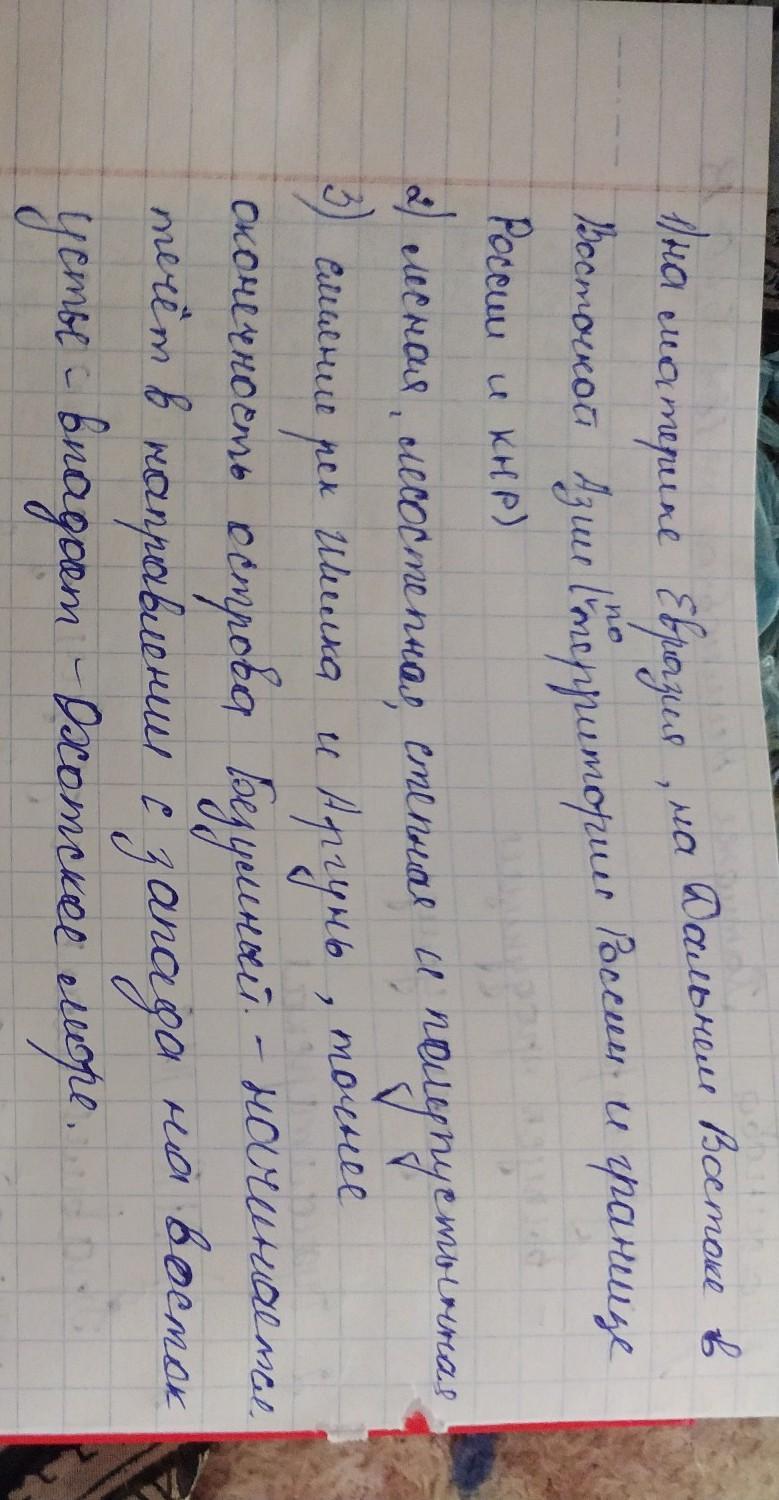 1) на материке Евразия, на Дальнем Востоке в
Восточной Азии (по территории России и границе
России и КНР)
2) лесная, лесостепная, степная и полупустынная
3) слияние рек Шилка и Аргунь, точнее
оконечность острова Безумный. - начинается
течёт в направлении с запада на восток
устье - впадает - Охотское море.